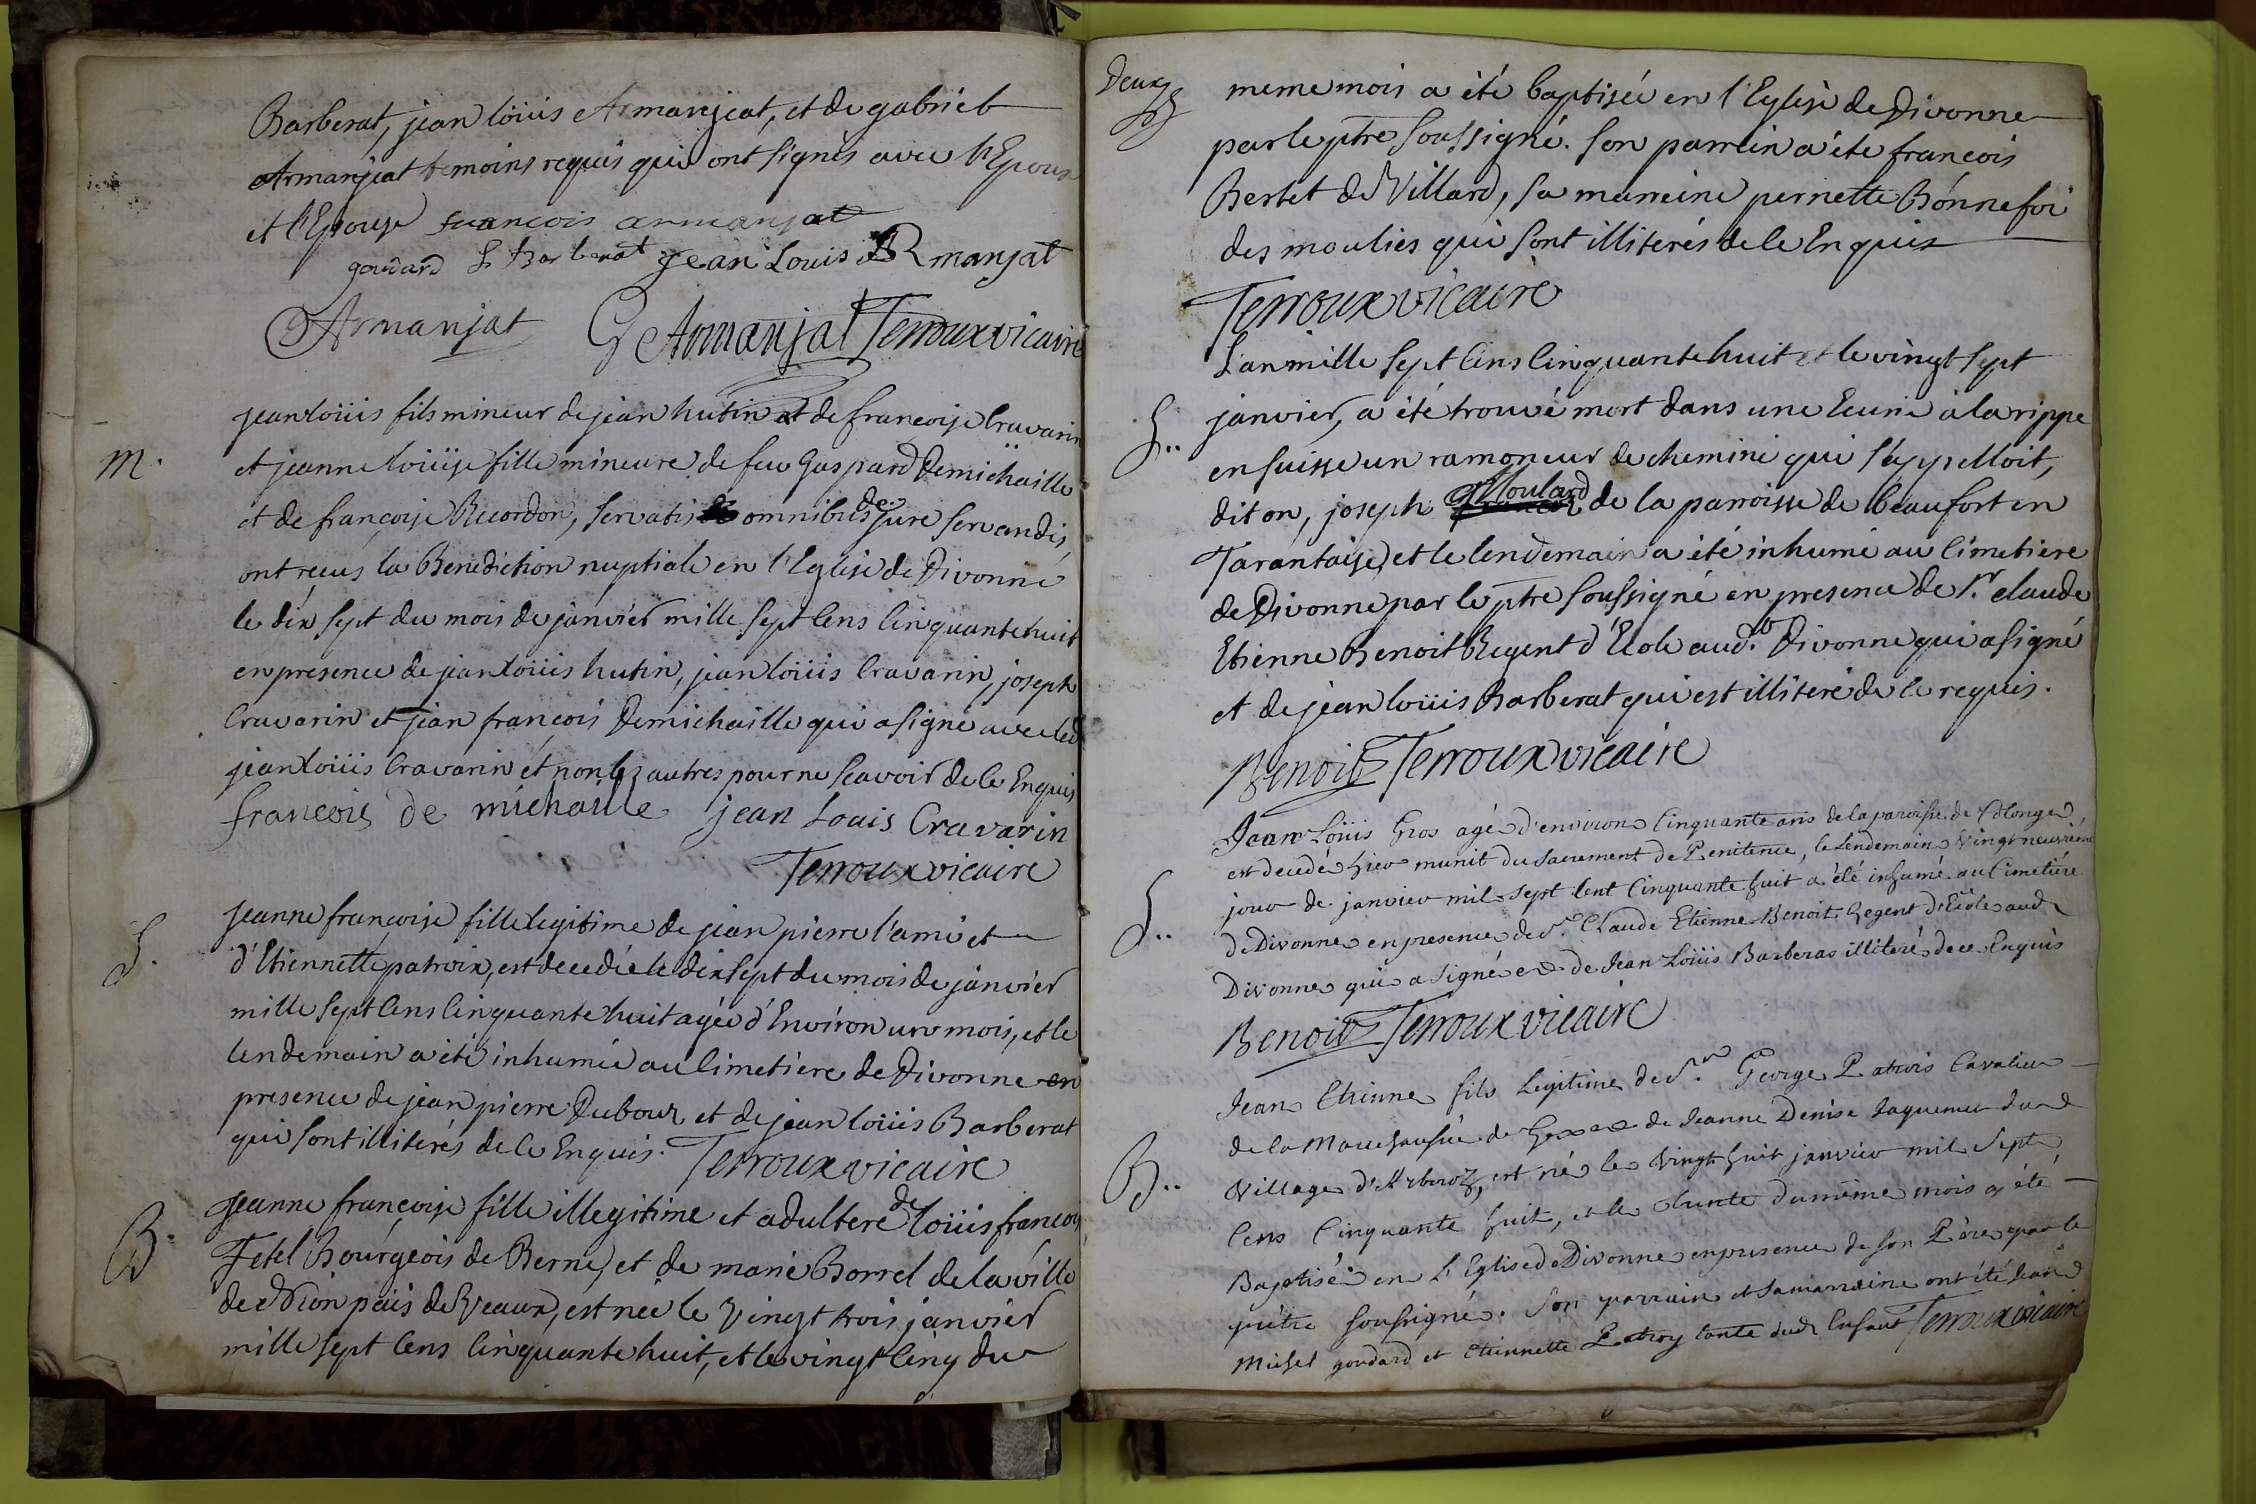 Barberat, jean loüis Armanjeat, et de gabriel
Armanjeat temoins requis qui ont signés avec l'Epoux
et l'Epouse francois armanjat
goudard L Barberat jean Louis ARmanjat
Armanjat G Armanjat Terroux vicaire
jean loüis fils mineur de jean hutin et de francoise Cravarin
M. et jeanne loüise fille mineure de feu Gaspard Demichaille
et de francoise Recordon, servatis omnibus de jure servandis,
ont recus la Benediction nuptiale en l'Eglise de Divonne
le dix sept du mois de janvier mille sept Cens Cinquante huit
en presence de jean loüis hutin, jean loüis Cravarin, joseph
Cravarin et jean francois Demichaille qui a signé avec led
jean loüis Cravarin et non les autres pour ne scavoir de Ce Enquis
francois de michaille jean Louis Cravarin
Terroux vicaire
jeanne francoise fille legitime de jean pierre l'ami et
S. d'Etiennette patroix, est decedée le dix sept du mois de janvier
mille sept Cens Cinquante huit agée d'Environ un mois, et le
lendemain a été inhumée au Cimetiere de Divonne en
presence de jean pierre Dubour et de jean loüis Barberat
qui sont illiterés de Ce Enquis. Terroux vicaire
Jeanne francoise fille illegitime et adultere de loüis francois
B. Fetel Bourgeois de Berne, et de marie Borrel de la ville
de Nion païs de Veaux, est nee le vingt trois janvier
mille sept Cens Cinquante huit, et le vingt Cinq du
Deux
meme mois a été baptisée en l'Eglise de Divonne
par le ptre soussigné. son parrein a été francois
Bertet de Villard, sa marreine pernette Bonnefoi
des moulies qui sont illiterés de Ce Enquis
Terroux vicaire
L'an mille sept Cens Cinquante huit et le vingt sept
S.. janvier, a été trouvé mort dans une Ecurie a la rippe
en suisse un ramoneur de cheminé qui s'appelloit,
dit on, joseph Moulard de la parroisse de beaufort en
Tarantaise, et le lendemain a été inhumé au Cimetiere
de Divonne par le ptre soussigné en presence de Sr. claude
Etienne Benoit Regent d'Ecole aud. Divonne qui a signé
et de jean loüis Barberat qui est illiteré de Ce requis.
Benoit Terroux vicaire
Jean Loüis Gros agé d'environ Cinquante ans de la paroisse de Colonge
est decedé hier munit du Sacrement de Penitence, le lendemain Vingt neuvieme
S.. jour de janvier mil sept Cent Cinquante huit a été inhumé au Cimetiere
de Divonne en presence de Sr. Claude Etienne Benoit Regent d'Ecole aud
Divonne qui a signé et de Jean Loüis Barberas illiteré de ce Enquis
Benoit Terroux vicaire
Jean Etienne fils Legitime de Sr. George Patrois Cavalier
de la Marechaussée de Gex et de Jeanne Denise Jaquemet dud
B.. Village d'Arberoz, est né le Vingt huit janvier mil Sept
Cens Cinquante huit, et le trente du même mois a été
Baptisé en L'Eglise de Divonne en presence de son Pere par le
prêtre soussigné. Son parrain et sa marraine ont été Jean
Michel goudard et Etiennette Patroy tante dud. Enfant Terroux vicaire